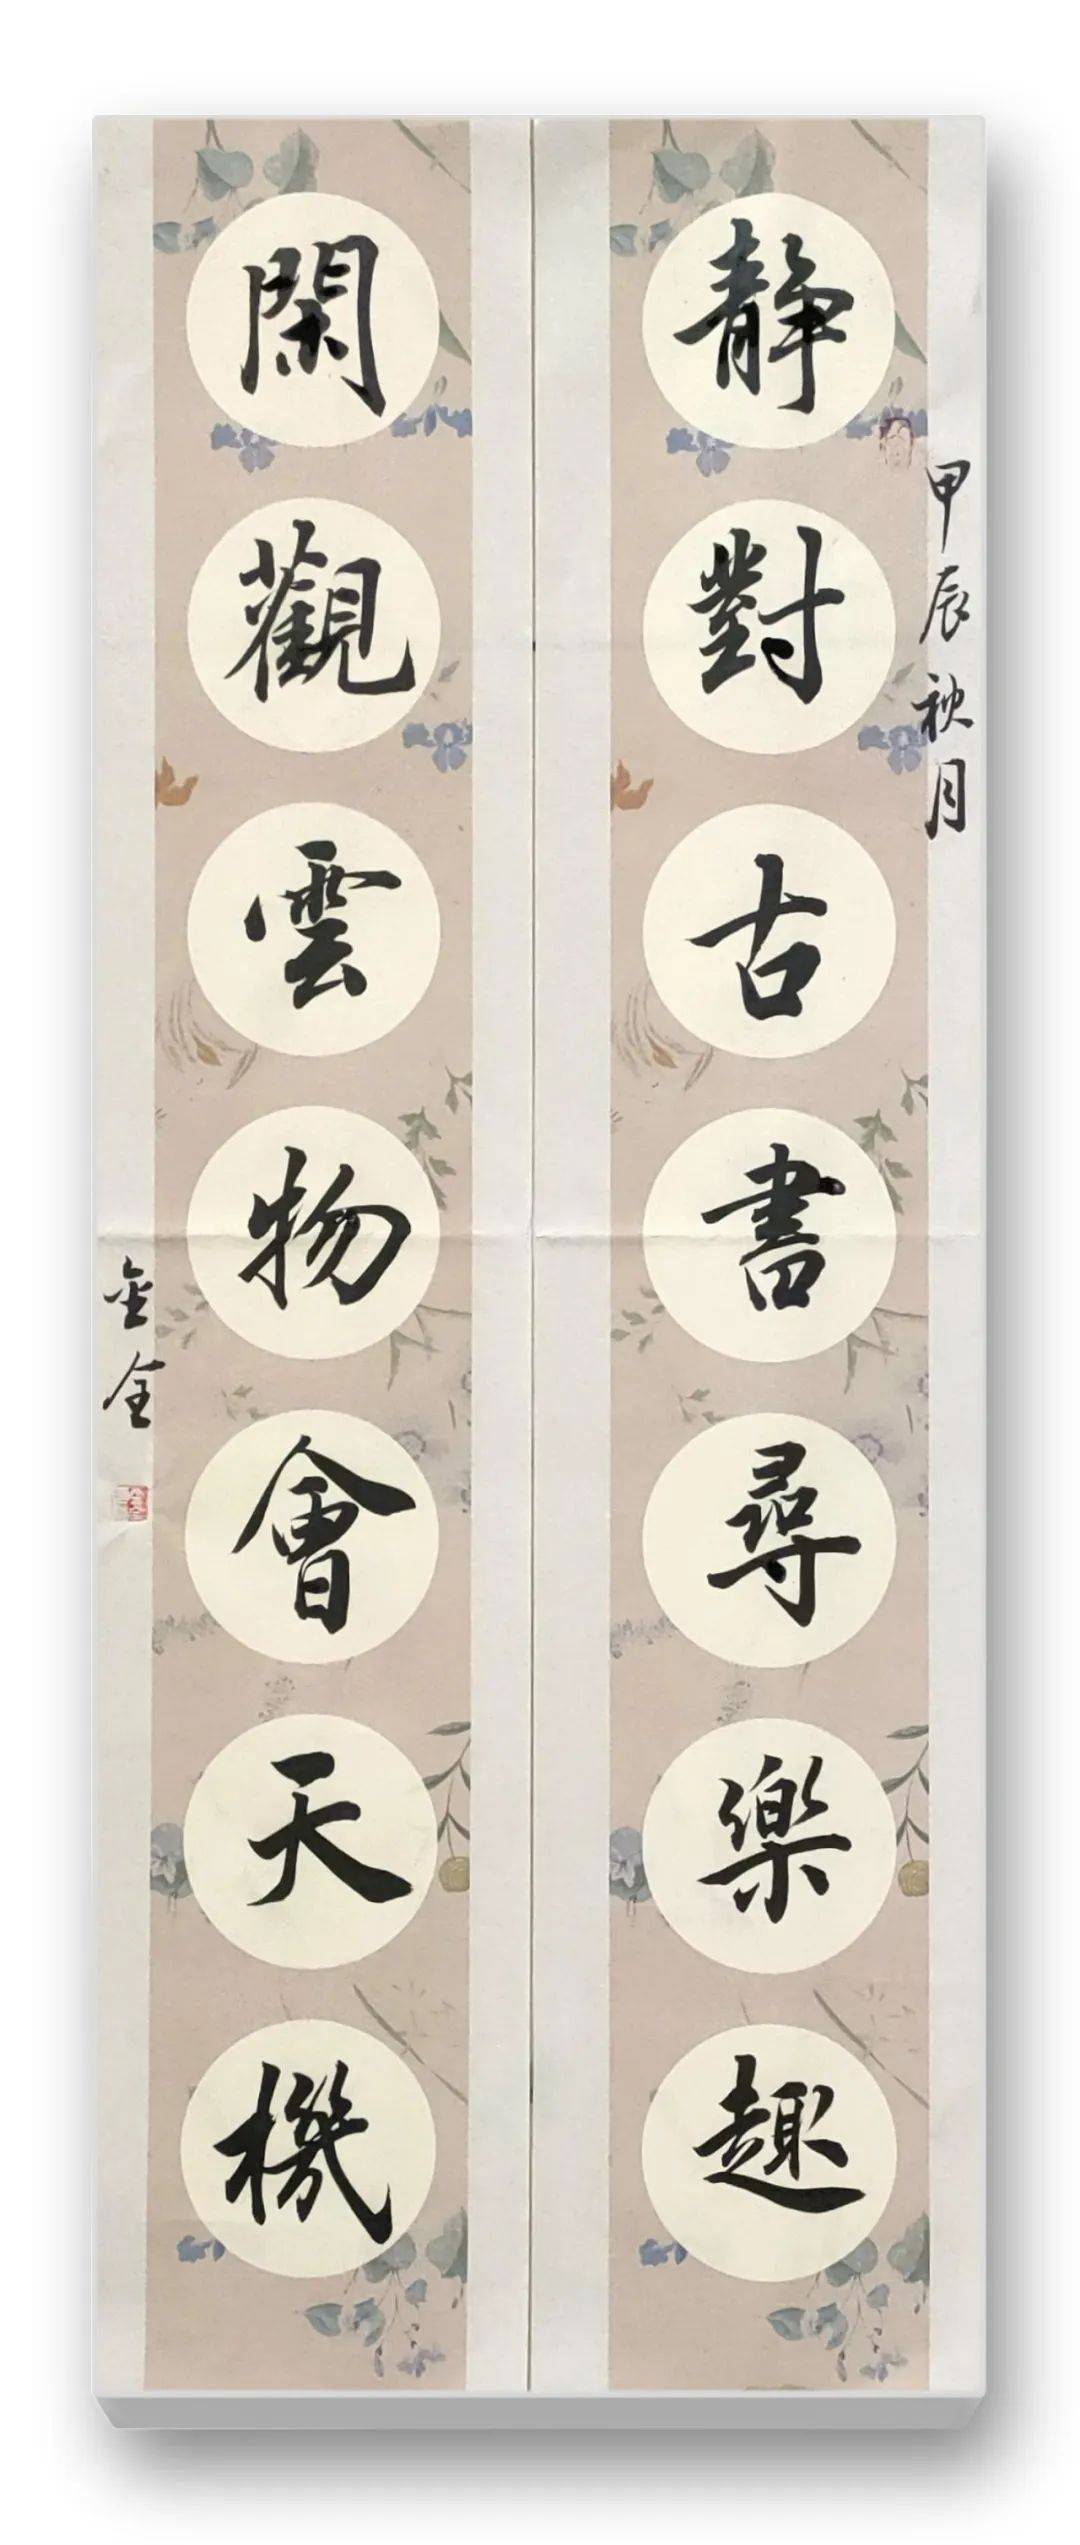 甲辰秋月
静對古書尋樂趣
閑觀雲物會天機
金全